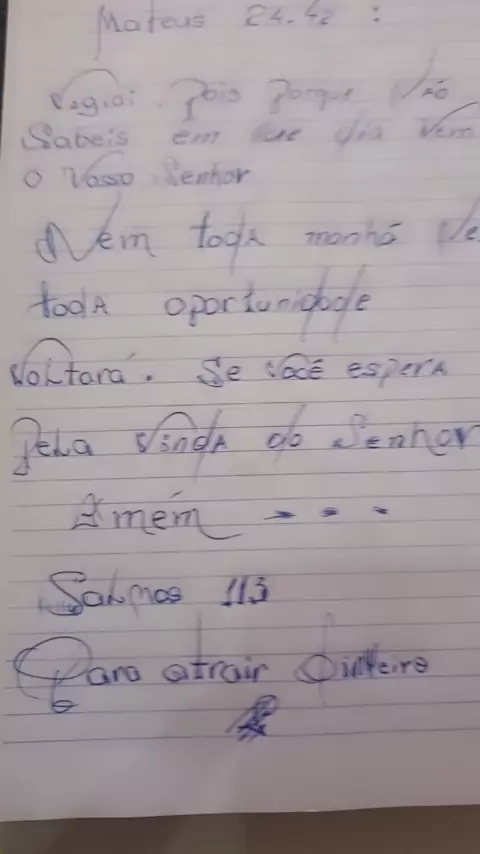 Mateus 24.42 :
Vigiai. Pois Porque Não
Sabeis em que dia Vem
o Vosso Senhor
Nem toda manhã Ne
toda oportunidade
Voltará. Se você espera
Pela Vinda do Senhor
Amém - - -
Salmos 113
Para atrair Dinheiro